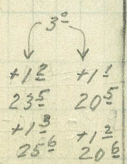 3º
+1² +1¹
23⁵ 20⁵
+1³ +1²
25⁶ 20⁶